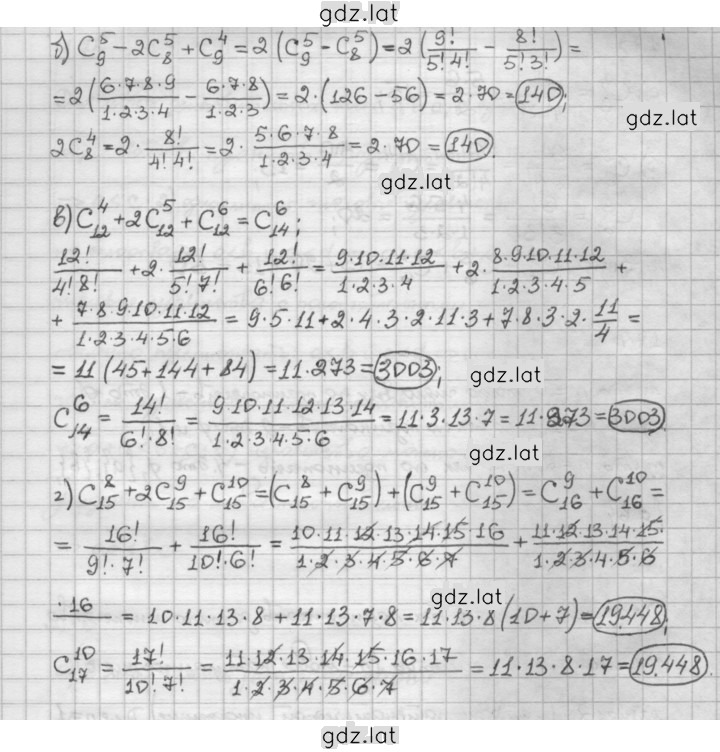 gdz.lat
б) C₉⁵ - 2C₈⁵ + C₉⁴ = 2 (C₉⁵ - C₈⁵) = 2 (9!/(5!4!) - 8!/(5!3!)) =
= 2 ((6·7·8·9)/(1·2·3·4) - (6·7·8)/(1·2·3)) = 2·(126-56) = 2·70 = 140;
gdz.lat
2C₈⁴ = 2· 8!/(4!4!) = 2· (5·6·7·8)/(1·2·3·4) = 2·70 = 140.
gdz.lat
в) C₁₂⁴ + 2C₁₂⁵ + C₁₂⁶ = C₁₄⁶;
12!/(4!8!) + 2· 12!/(5!7!) + 12!/(6!6!) = (9·10·11·12)/(1·2·3·4) + 2· (8·9·10·11·12)/(1·2·3·4·5) +
+ (7·8·9·10·11·12)/(1·2·3·4·5·6) = 9·5·11+2·4·3·2·11·3+7·8·3·2· 11/4 =
= 11 (45+144+84) = 11·273 = 3003;
gdz.lat
C₁₄⁶ = 14!/(6!·8!) = (9·10·11·12·13·14)/(1·2·3·4·5·6) = 11·3·13·7 = 11·273 = 3003.
gdz.lat
г) C₁₅⁸ + 2C₁₅⁹ + C₁₅¹⁰ = (C₁₅⁸ + C₁₅⁹) + (C₁₅⁹ + C₁₅¹⁰) = C₁₆⁹ + C₁₆¹⁰ =
= 16!/(9!·7!) + 16!/(10!·6!) = (10·11·12·13·14·15·16)/(1·2·3·4·5·6·7) + (11·12·13·14·15·)/(1·2·3·4·5·6)
gdz.lat
·16 = 10·11·13·8 + 11·13·7·8 = 11·13·8 (10+7) = 19448;
C₁₇¹⁰ = 17!/(10!7!) = (11·12·13·14·15·16·17)/(1·2·3·4·5·6·7) = 11·13·8·17 = 19.448.
gdz.lat